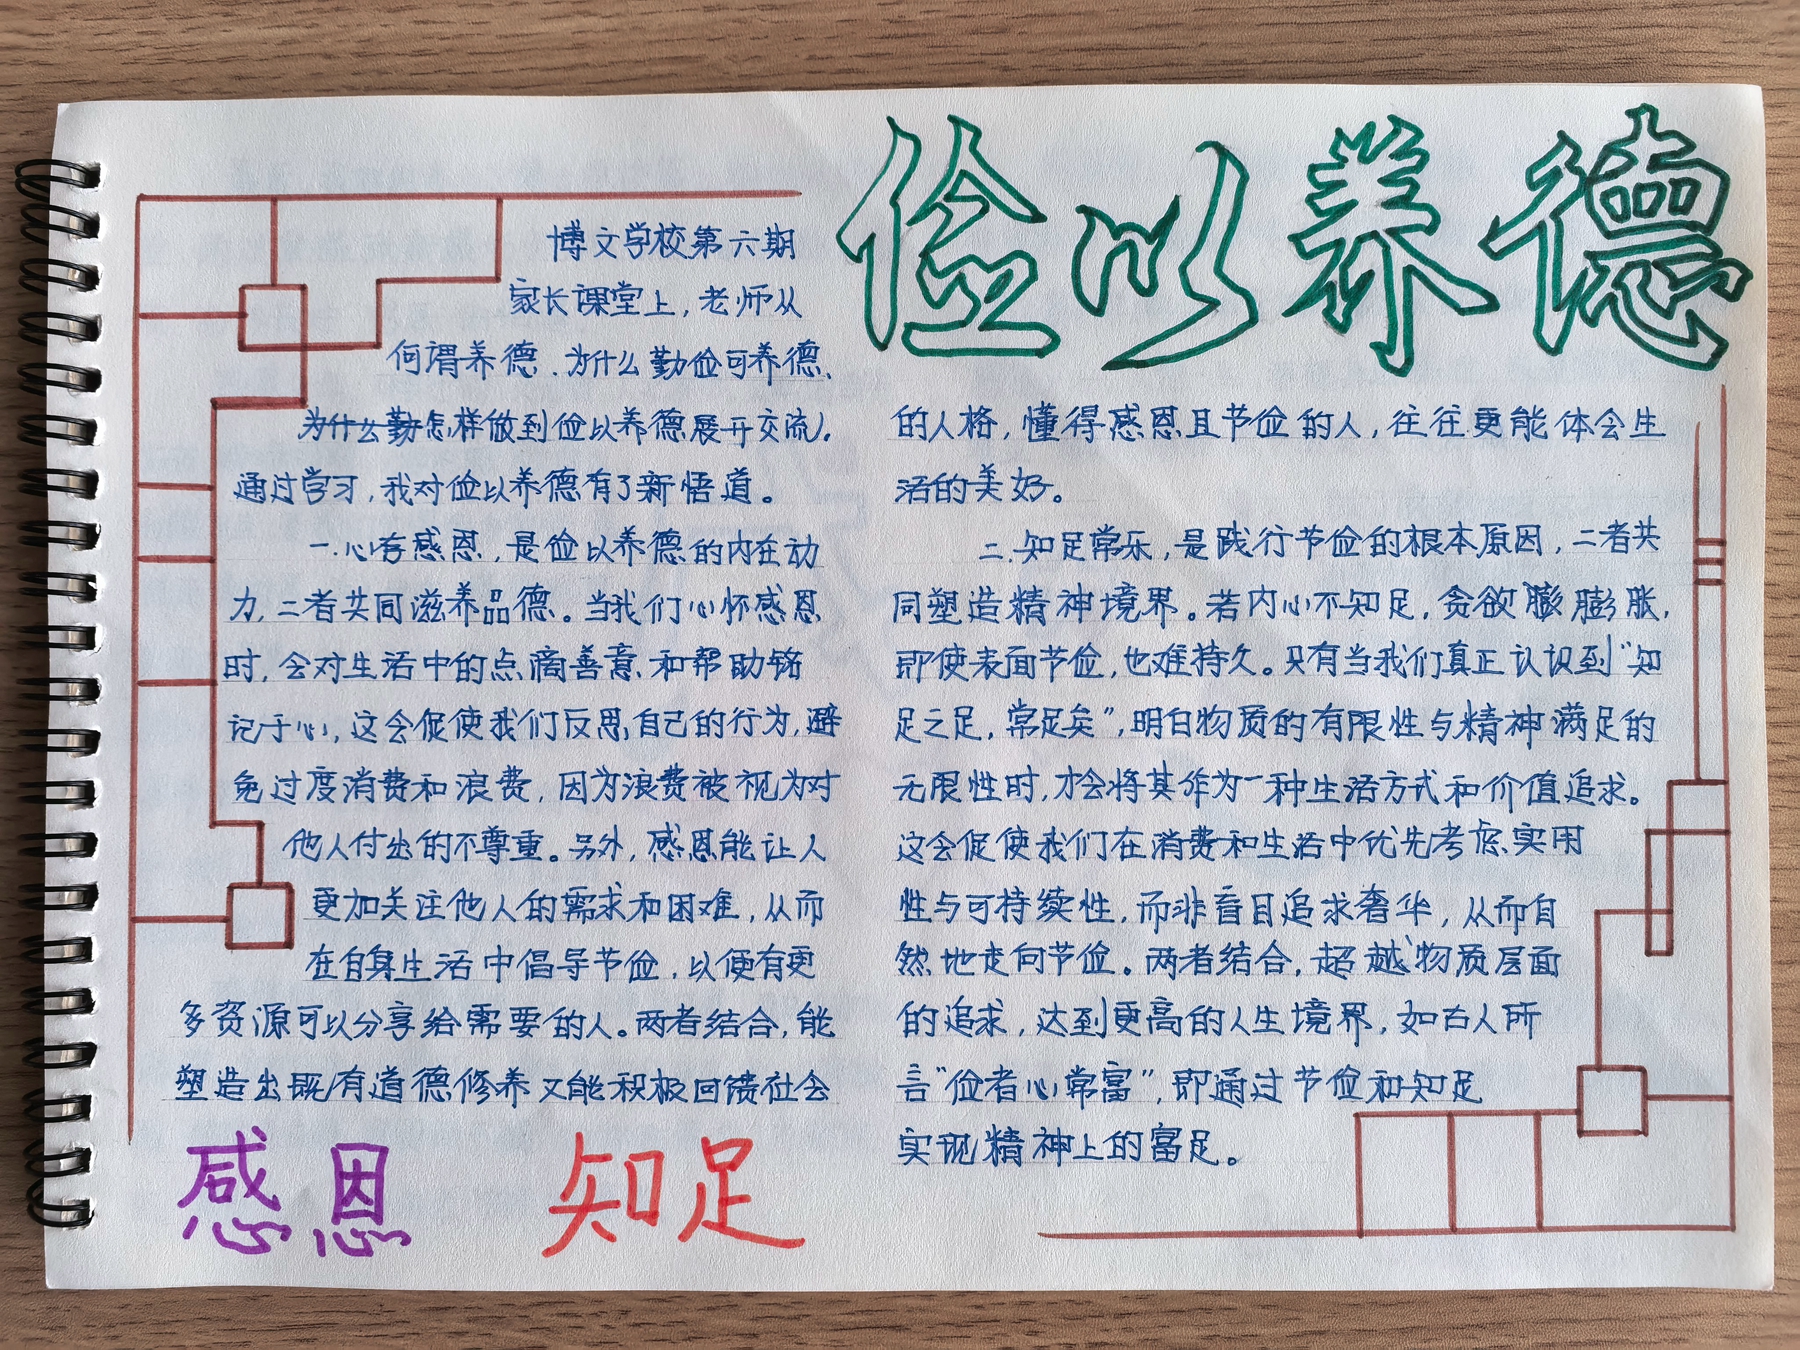 俭以养德
博文学校第六期
家长课堂上，老师从
何谓养德、为什么勤俭可养德、
为什么勤怎样做到俭以养德展开交流。
通过学习，我对俭以养德有了新悟道。
一.心存感恩，是俭以养德的内在动
力，二者共同滋养品德。当我们心怀感恩
时，会对生活中的点滴善意和帮助铭
记于心，这会促使我们反思自己的行为，避
免过度消费和浪费，因为浪费被视为对
他人付出的不尊重。另外，感恩能让人
更加关注他人的需求和困难，从而
在自身生活中倡导节俭，以便有更
多资源可以分享给需要的人。两者结合，能
塑造出既有道德修养又能积极回馈社会
的人格，懂得感恩且节俭的人，往往更能体会生
活的美好。
二.知足常乐，是践行节俭的根本原因，二者共
同塑造精神境界。若内心不知足，贪欲膨膨胀，
即使表面节俭，也难持久。只有当我们真正认识到“知
足之足，常足矣”，明白物质的有限性与精神满足的
无限性时，才会将其作为一种生活方式和价值追求。
这会促使我们在消费和生活中优先考虑实用
性与可持续性，而非盲目追求奢华，从而自
然地走向节俭。两者结合，超越物质层面
的追求，达到更高的人生境界，如古人所
言“俭者心常富”，即通过节俭和知足
实现精神上的富足。
感恩 知足